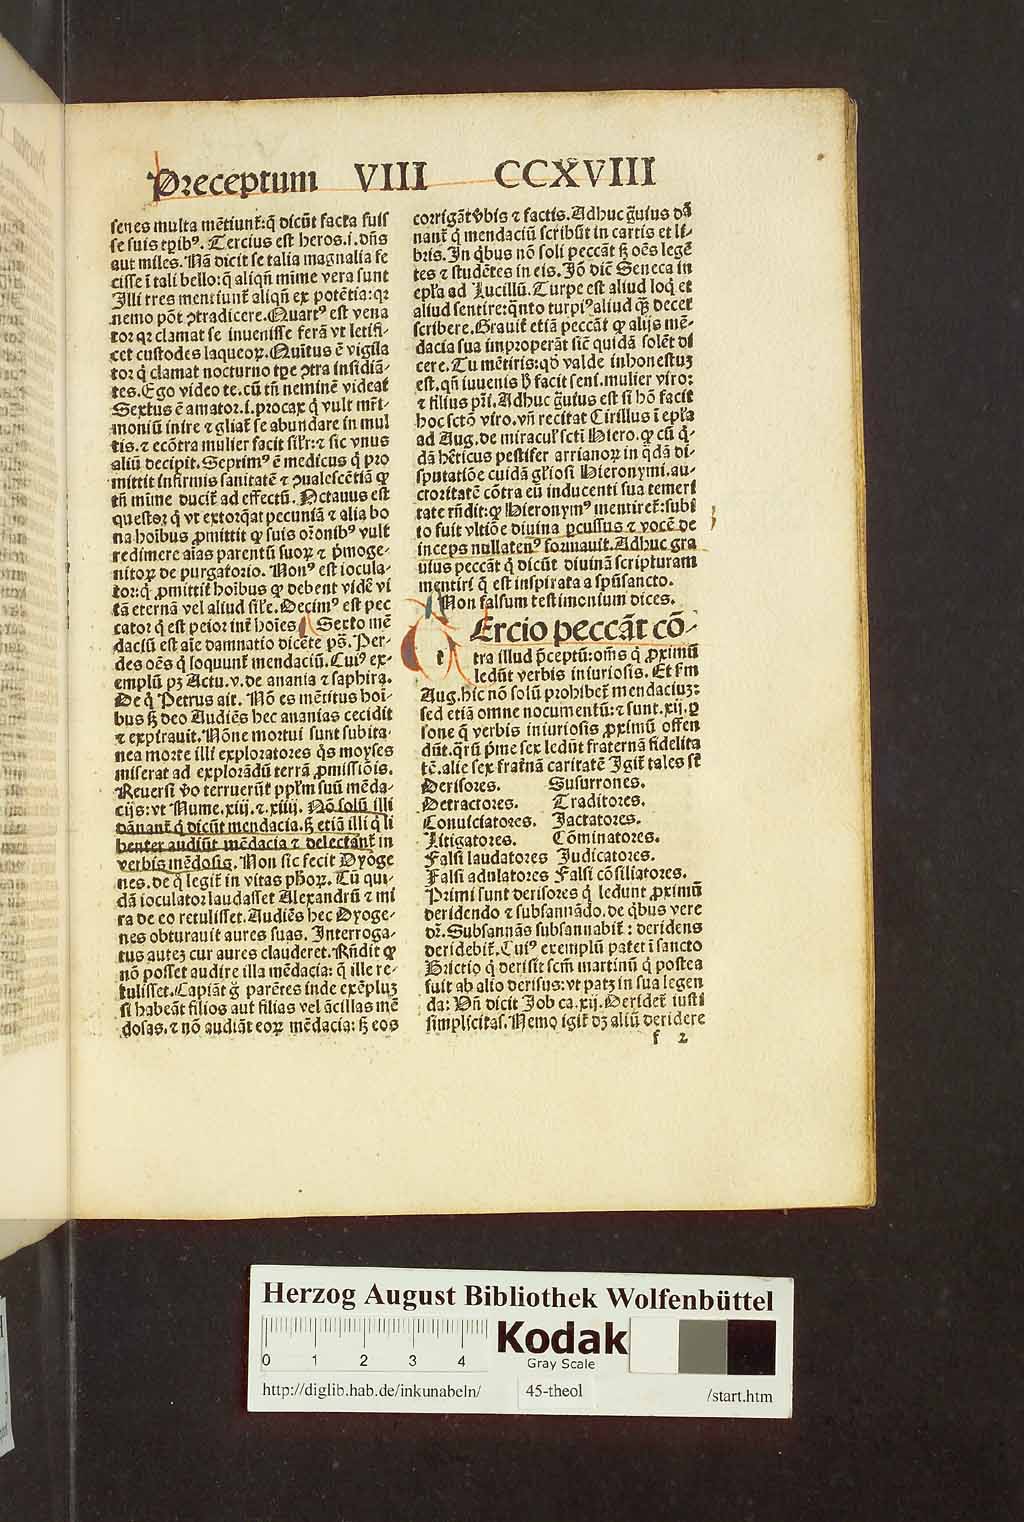 Preceptum VIII CCXVIII
senes multa mẽtiunt̃: q̃ dicũt facta fuis
se suis tp̃ibꝰ. Tercius est heros .i. dñs
aut miles. Nã dicit se talia magnalia fe
cisse ĩ tali bello: q̃ aliqñ mĩme vera sunt
Illi tres mentiunt̃ aliqñ ex potẽtia: qꝛ
nemo põt ꝯtradicere. Quartꝰ est vena
tor qꝛ clamat se inuenisse ferã vt letifi-
cet custodes laqueoꝝ. Quĩtus ẽ vigila
tor q̃ clamat nocturno tp̃e ꝯtra insidiã-
tes. Ego video te. cũ tñ neminẽ videat
Sextus ẽ amator .i. procax q̃ vult mr̃i-
moniũ inire ⁊ gliat̃ se abundare in mul
tis. ⁊ ecõtra mulier facit sil̃r: ⁊ sic vnus
aliũ decipit. Septimꝰ ẽ medicus q̃ pro
mittit infirmis sanitatẽ ⁊ ꝯualescẽtiã ꝙ
tñ mĩme ducit̃ ad effectũ. Octauus est
questor q̃ vt extorq̃at pecuniã ⁊ alia bo
na hoĩbus ꝓmittit ꝙ suis or̃onibꝰ vult
redimere aĩas parentũ suoꝝ ⁊ p̃moge-
nitoꝝ de purgatorio. Nonꝰ est iocula-
tor: q̃ ꝓmittit̃ hoĩbus ꝙ debent vidẽ vi
tã eternã vel aliud sil̃e. Decimꝰ est pec
cator q̃ est peior int̃ hoĩes. Sexto mẽ
daciũ est aĩe damnatio dicẽte ps̃. Per-
des oẽs q̃ loquunt̃ mendaciũ. Cuiꝰ ex-
emplũ pꝫ Actu. v. de anania ⁊ saphira.
De q̃ Petrus ait. Nõ es mẽtitus hoĩ-
bus sꝫ deo Audiẽs hec ananias cecidit
⁊ expirauit. Nõne mortui sunt subita-
nea morte illi exploratores q̃s moyses
miserat ad explorãdũ terrã ꝓmissiõis.
Reuersi ṽo terruerũt ppl̃m suũ mẽda-
cijs: vt Nume. xiij. ⁊. xiiij. Nõ solũ illi
dãnant̃ q̃ dicũt mendacia. sꝫ etiã illi q̃ li
benter audiũt mẽdacia ⁊ delectant̃ in
verbis mẽdosis. Non sic fecit Dyoge
nes. de q̃ legit̃ in vitas ph̃oꝝ. Cũ qui-
dã ioculator laudasset Alexandrũ ⁊ mi
ra de eo retulisset. Audiẽs hec Dyoge-
nes obturauit aures suas. Interroga-
tus autẽ cur aures clauderet. Rñdit ꝙ
nõ posset audire illa mẽdacia: q̃ ille re-
tulisset. Capiãt g̃ parẽtes inde exẽplũ
si habeãt filios aut filias vel ãcillas mẽ
dosas. ⁊ nõ audiãt eoꝝ mẽdacia: sꝫ eos
corrigãt ṽbis ⁊ factis. Adhuc g̃uius dã
nant̃ q̃ mendaciũ scribũt in cartis et li-
bris. In q̃bus nõ soli peccãt sꝫ oẽs legẽ
tes ⁊ studẽtes in eis. Iõ dicit Seneca in
epl̃a ad Lucillũ. Turpe est aliud loq̃ et
aliud sentire: q̃nto turpiꝰ aliud q̃ꝫ decet
scribere. Grauit̃ etiã peccãt ꝙ alijs mẽ-
dacia sua improperãt sic̃ quidã solẽt di
cere. Tu mẽtiris: qd̃ valde inhonestuꝫ
est. qñ iuuenis h̃ facit seni. mulier viro:
⁊ filius pr̃i. Adhuc g̃uius est si hõ facit
hoc sctõ viro. vñ recitat Cirillus ĩ epl̃a
ad Aug. de miracul̃ scti Hiero. ꝙ cũ q̃-
dã hẽticus pestifer arrianoꝝ in q̃dã di-
sputatiõe cuidã gl̃iosi Hieronymi. au-
ctoritatẽ cõtra eũ inducenti sua temeri
tate rñdit: ꝙ Hieronymꝰ mentiret̃: subi
to fuit vltiõe diuina ꝑcussus ⁊ vocẽ de
inceps nullatenꝰ formauit. Adhuc gra
uius peccãt q̃ dicũt diuinã scripturam
mentiri q̃ est inspirata a spũsancto.
Non falsum testimonium dices.
tErcio peccãt cõ-
tra illud p̃ceptũ: oms̃ q̃ ꝓximũ
ledũt verbis iniuriosis. Et s̃m
Aug. hic nõ solũ prohibet̃ mendaciuꝫ:
sed etiã omne nocumentũ: ⁊ sunt. xij. ꝑ
sone q̃ verbis iniuriosis ꝓximũ offen
dũt. q̃rũ p̃me sex ledũt fraternã fidelita
tẽ. alie sex frat̃nã caritatẽ Igit̃ tales st̃
Derisores. Susurrones.
Detractores. Traditores.
Conuiciatores. Jactatores.
Litigatores. Cõminatores.
Falsi laudatores Judicatores.
Falsi adulatores Falsi cõsiliatores.
Primi sunt derisores q̃ ledunt ꝓximũ
deridendo ⁊ subsannãdo. de q̃bus vere
dr̃. Subsannãs subsannabit̃: deridens
deridebit̃. Cuiꝰ exemplũ patet ĩ sancto
Brictio q̃ derisit scm̃ martinũ q̃ postea
fuit ab alio derisus: vt patꝫ in sua legen
da: Vñ dicit Job ca. xij. Deridet̃ iusti
simplicitas. Nemo igit̃ dꝫ aliũ deridere
f 2
Herzog August Bibliothek Wolfenbüttel
0 1 2 3 4
Kodak
Gray Scale
http://diglib.hab.de/inkunabeln/ 45-theol /start.htm